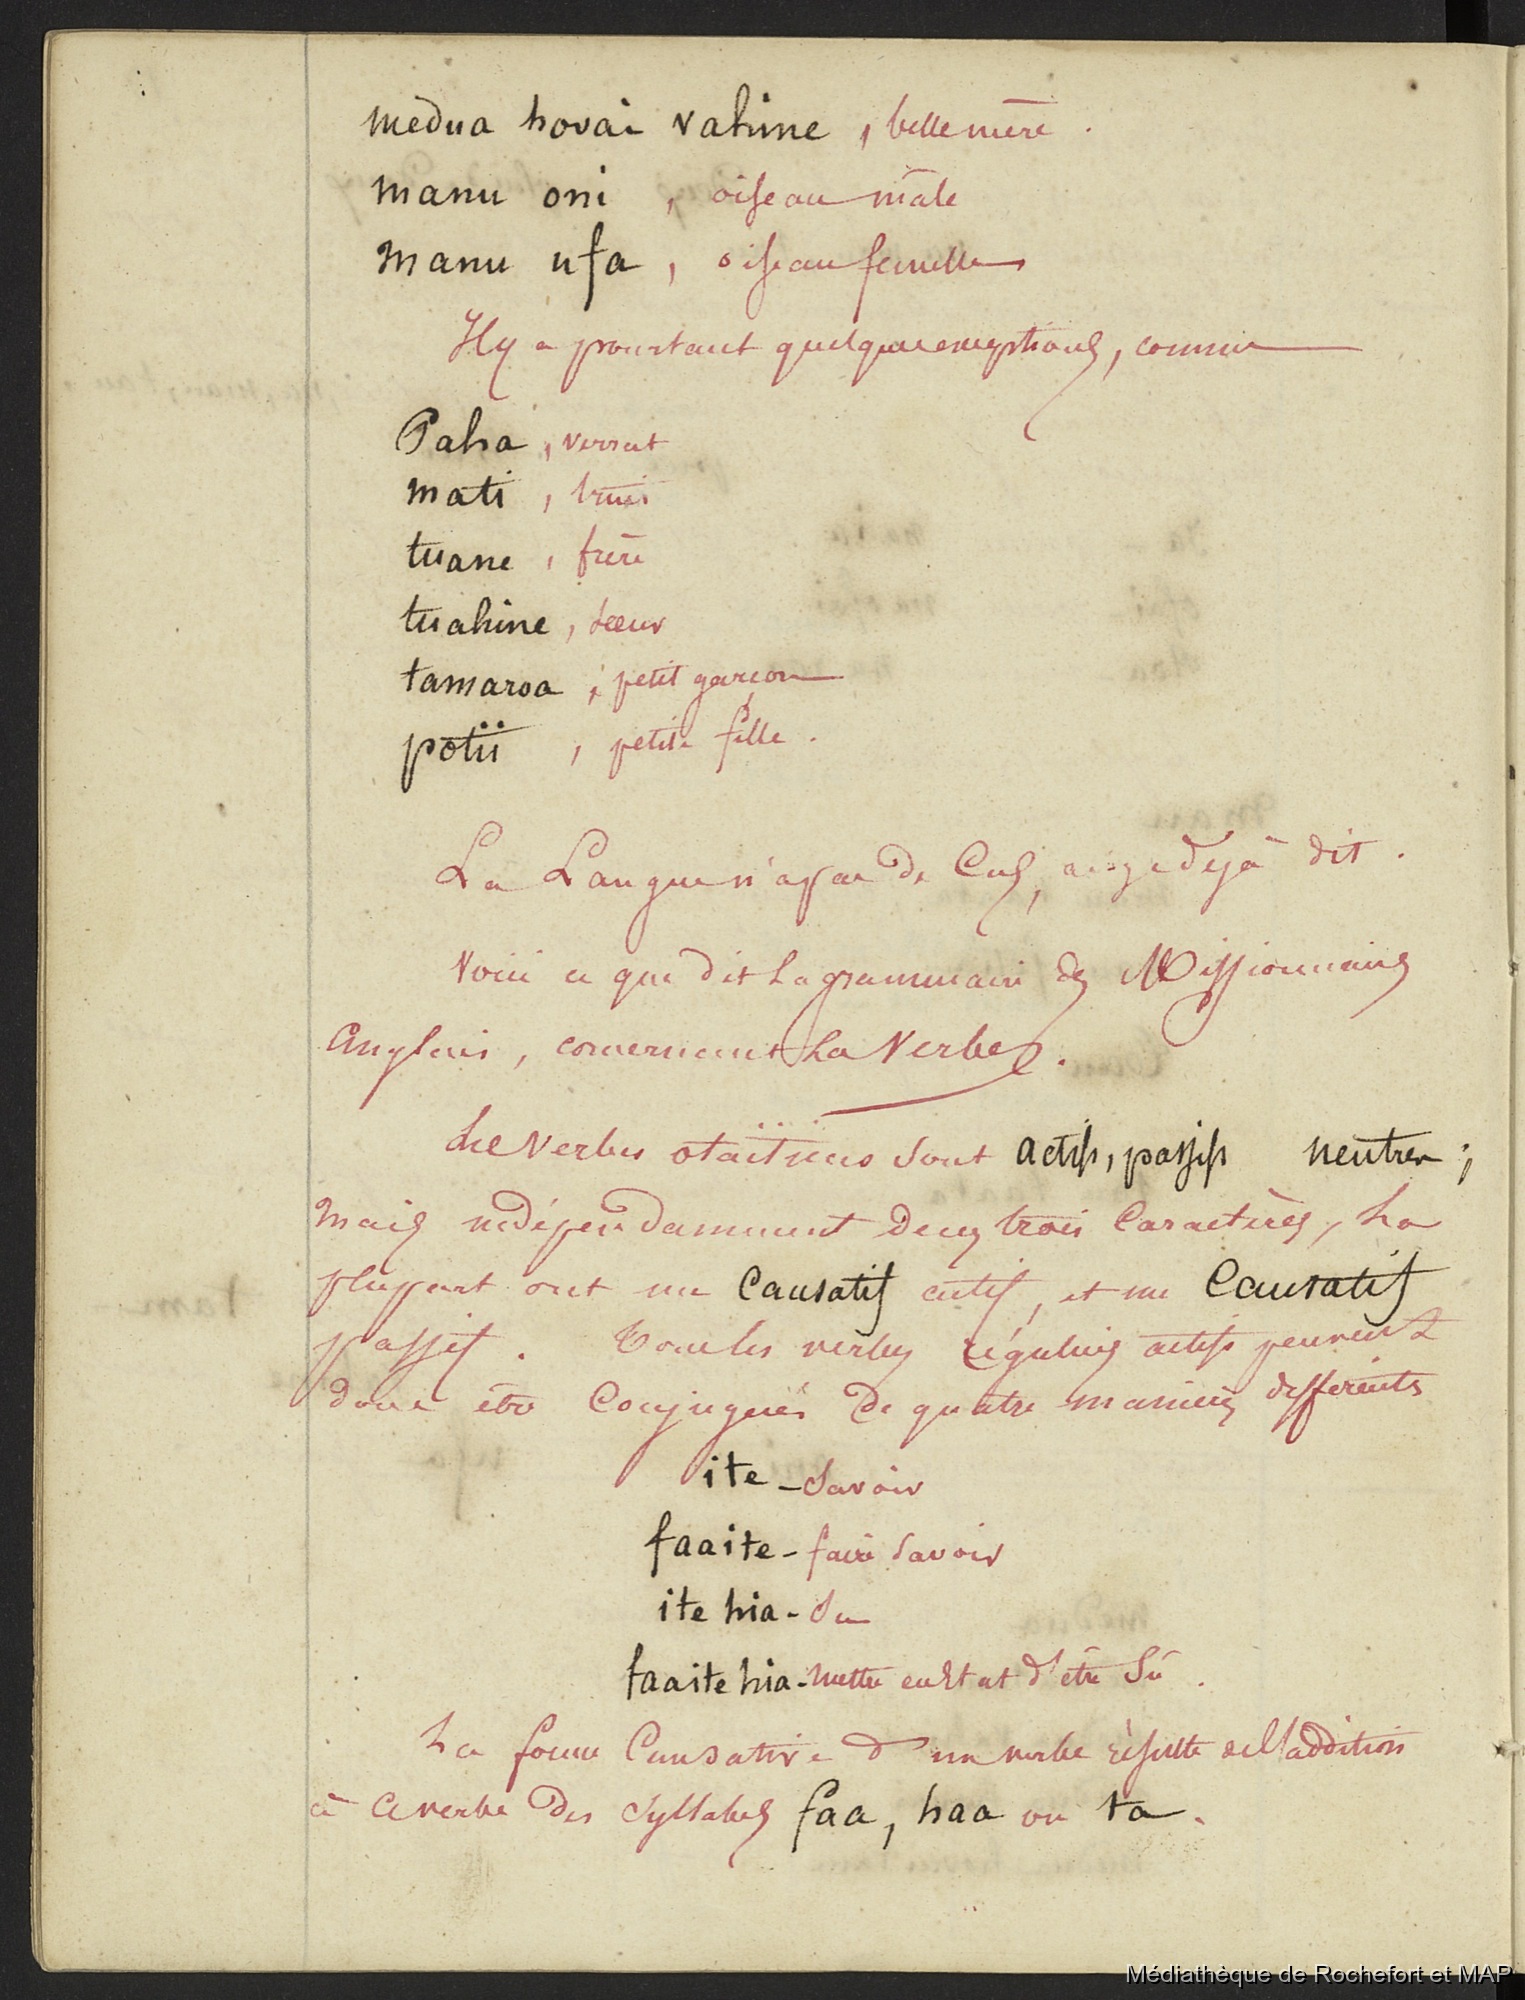 medua hovai vahine, belle mère.
manu oni, oiseau mâle
manu ufa, oiseau femelle
Il y a pourtant quelques exceptions, comme
Paha, verrat
mati, truie
tuane, frère
tuahine, sœur
tamaroa, petit garçon
potii, petite fille.
La Langue n'a pas de Cas, ai-je déjà dit.
Voici ce que dit la grammaire des Missionnaires
Anglais, concernant les Verbes.
Les verbes otaïtiens sont actifs, passifs neutres;
mais indépendamment de ces trois Caractères, la
plupart ont un Causatif actif, et un Causatif
passif. Tous les verbes réguliers actifs peuvent
donc être Conjugués de quatre manières différents
ite - Savoir
faaite - faire savoir
ite hia - Su
faaite hia - mettre en état d'être Sû.
La forme Causative d'un verbe résulte de l'addition
à ce verbe des Syllabes faa, haa ou ta.
Médiathèque de Rochefort et MAP